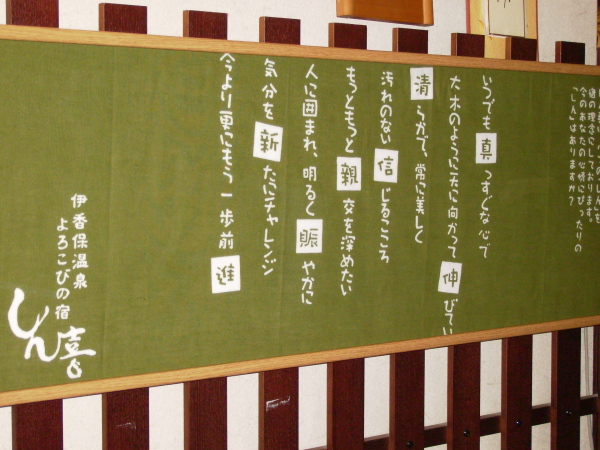 宿の理念としております。
今のあなたの心情にぴったりの
「しん」はありますか?
いつでも真っすぐな心で
大木のように天に向かって伸びてい
清らかで、常に美しく
汚れのない信じるこころ
もっともっと親交を深めたい
人に囲まれ、明るく賑やかに
気分を新たにチャレンジ
今より更にもう一歩前進
伊香保温泉
よろこびの宿
しん喜